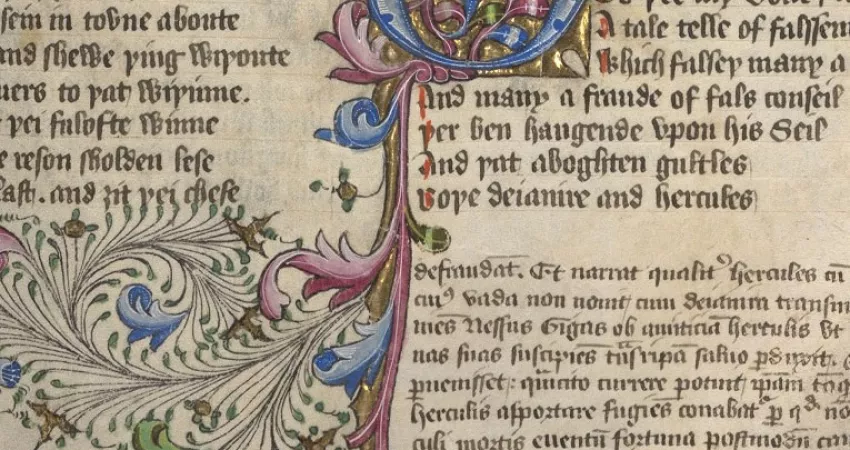 sein in toune aboute
and shewe þing wiþoute
uers to þat wiþinne.
þei fulofte winne
e reson sholden lese
last. and ȝit þei chese
A tale telle of falssem
Which falseþ many a
And many a fraude of fals conseil
þer ben hangende vpon his Seil
And þat aboghten gultles
boþe deianire and hercules
defraudat. Et narrat qualit᷑ hercules cū
cuiꝰ vada non nouit cum deianira transm
uies Nessus Gigas ob amiticiā herculis vt
uas suas suscipiēs ripā saluo ꝑduxit.
ꝑuenisset: currere potuit ip̄am tāq
herculis asportare fugiēs conabat ꝑ no
culi mortis euentū fortuna postmodū cau